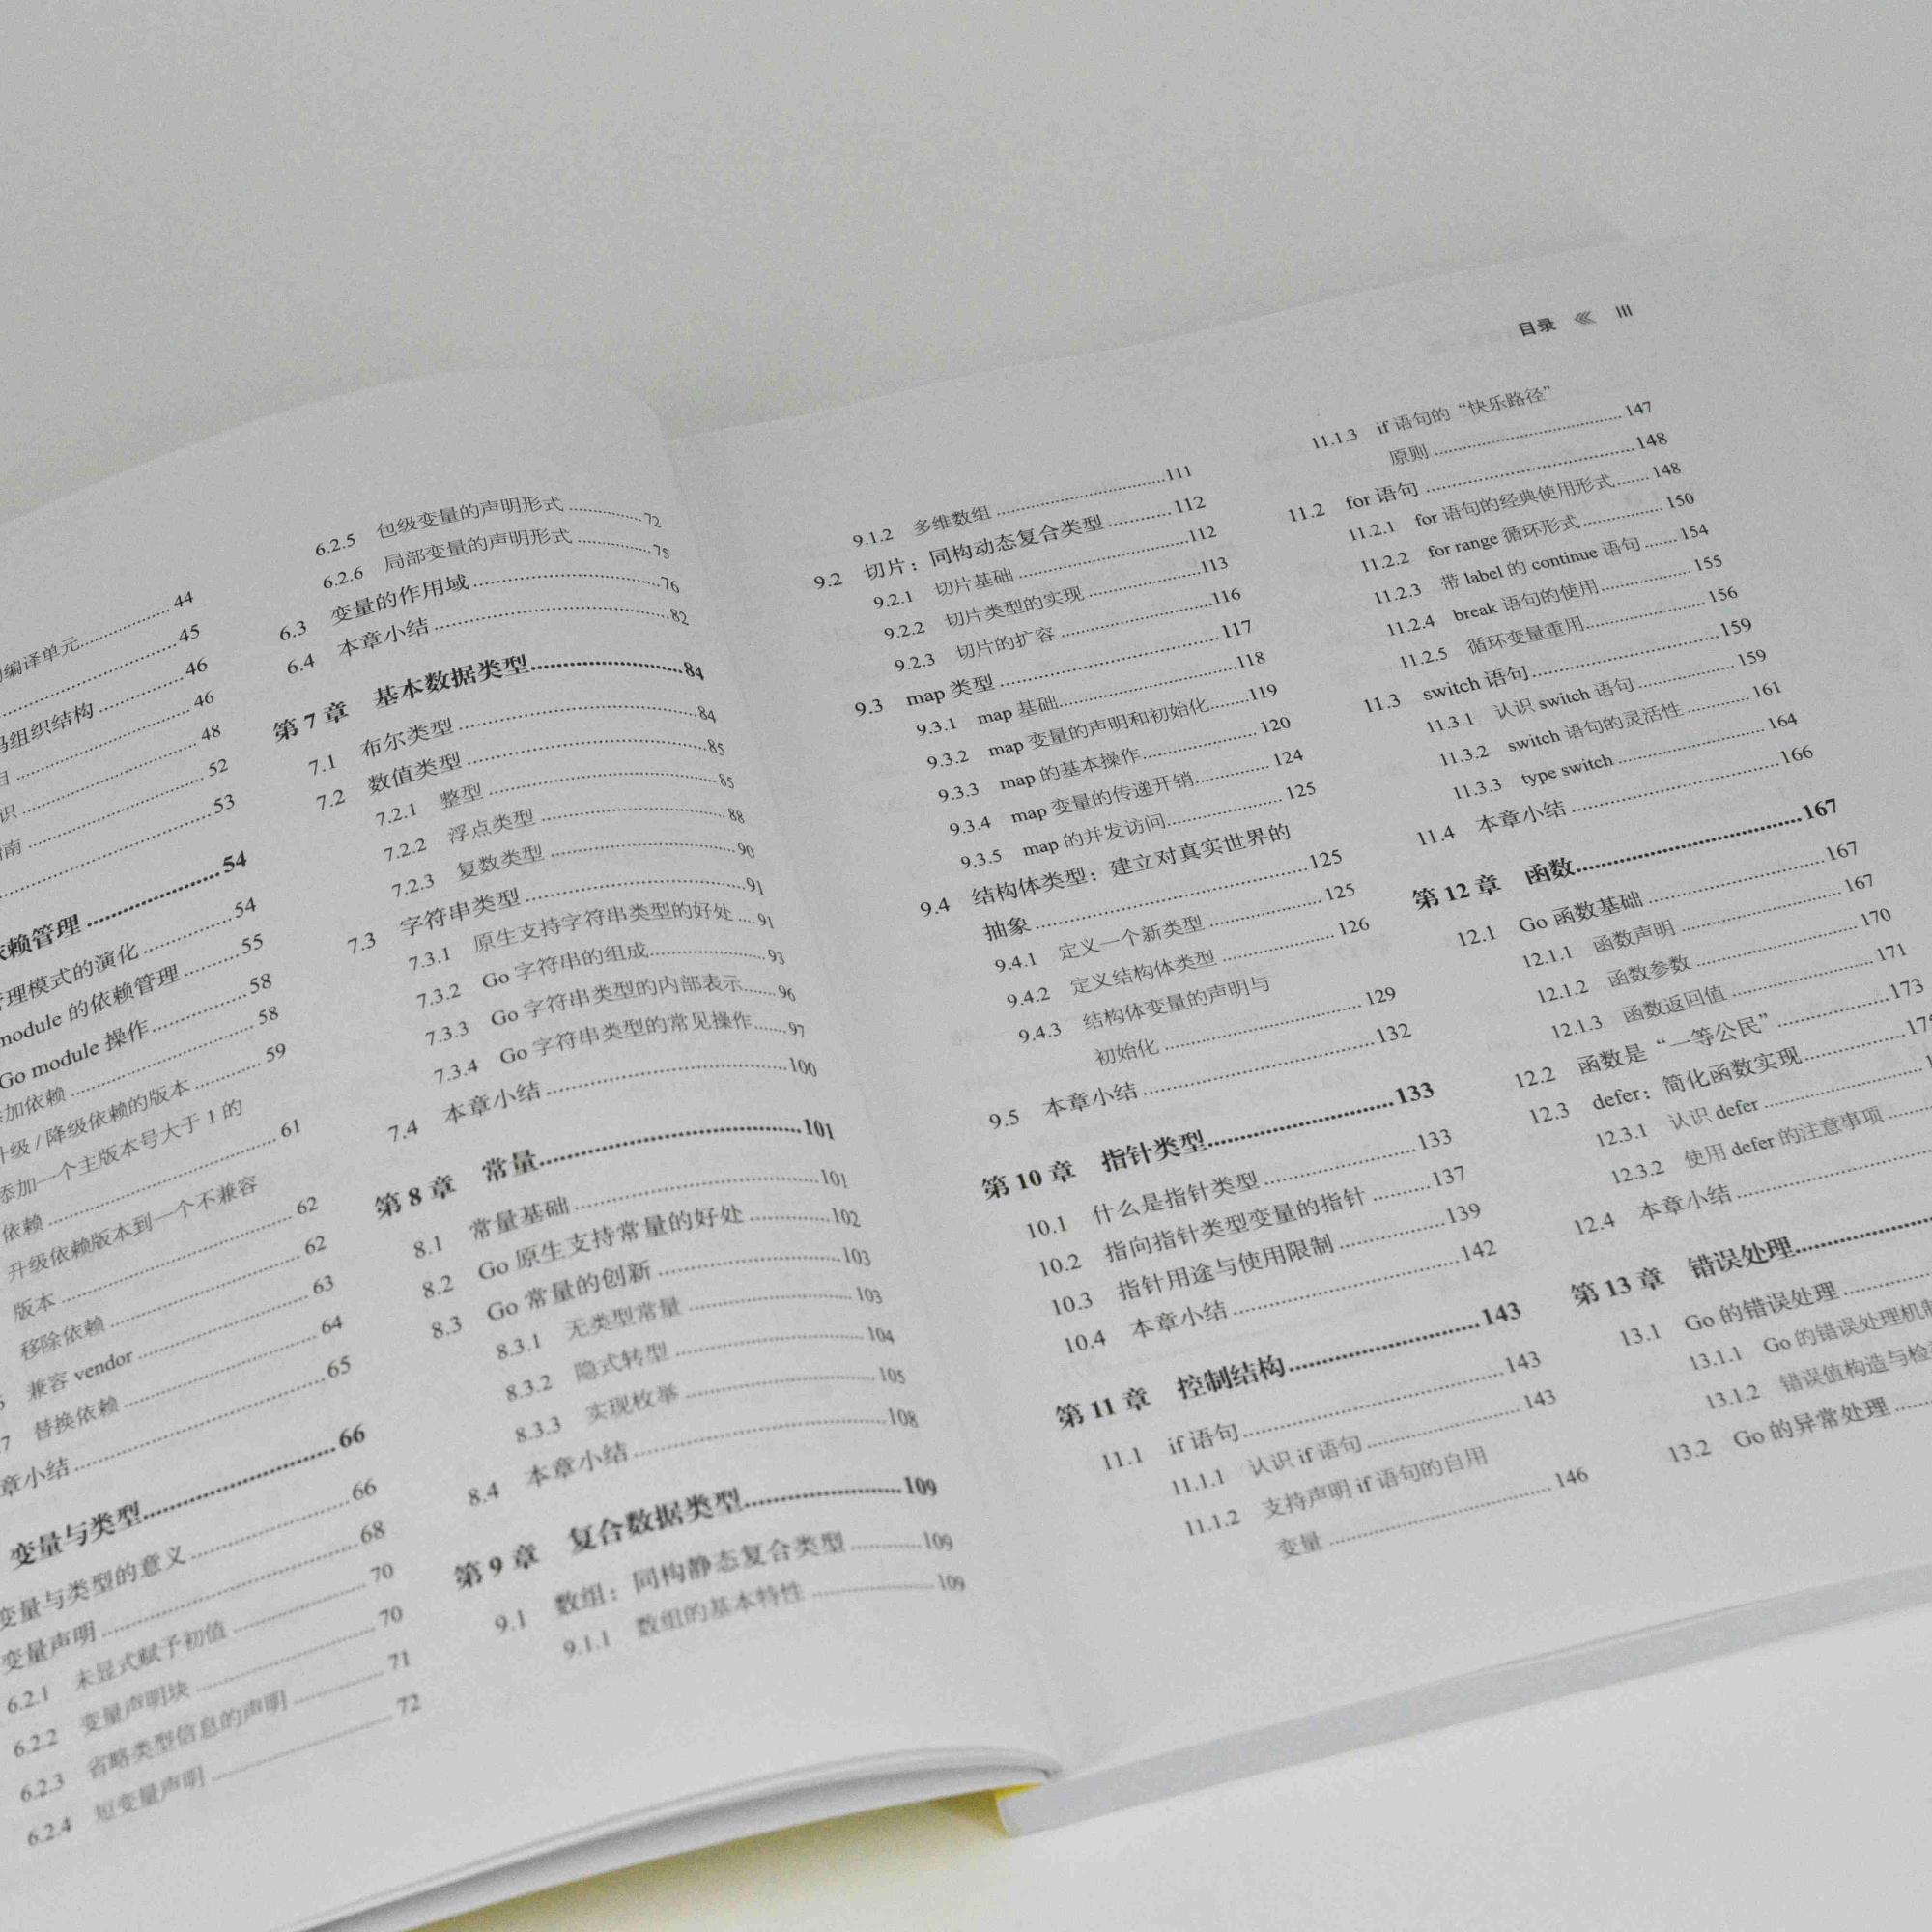 编译单元 44
45
组织结构 46
46
48
52
南 53
依赖管理 54
管理模式的演化 54
module 的依赖管理 55
Go module 操作 58
加依赖 58
升级 / 降级依赖的版本 59
添加一个主版本号大于 1 的
依赖 61
升级依赖版本到一个不兼容
版本 62
移除依赖 62
兼容 vendor 63
7 替换依赖 64
章小结 65
变量与类型 66
变量与类型的意义 66
变量声明 68
6.2.1 未显式赋予初值 70
6.2.2 变量声明块 70
6.2.3 省略类型信息的声明 71
6.2.4 短变量声明 72
6.2.5 包级变量的声明形式 72
6.2.6 局部变量的声明形式 75
6.3 变量的作用域 76
6.4 本章小结 82
第 7 章 基本数据类型 84
7.1 布尔类型 84
7.2 数值类型 85
7.2.1 整型 85
7.2.2 浮点类型 88
7.2.3 复数类型 90
7.3 字符串类型 91
7.3.1 原生支持字符串类型的好处 91
7.3.2 Go 字符串的组成 93
7.3.3 Go 字符串类型的内部表示 96
7.3.4 Go 字符串类型的常见操作 97
7.4 本章小结 100
第 8 章 常量 101
8.1 常量基础 101
8.2 Go 原生支持常量的好处 102
8.3 Go 常量的创新 103
8.3.1 无类型常量 103
8.3.2 隐式转型 104
8.3.3 实现枚举 105
8.4 本章小结 108
第 9 章 复合数据类型 109
9.1 数组：同构静态复合类型 109
9.1.1 数组的基本特性 109
目录 III
9.1.2 多维数组 111
9.2 切片：同构动态复合类型 112
9.2.1 切片基础 112
9.2.2 切片类型的实现 113
9.2.3 切片的扩容 116
9.3 map 类型 117
9.3.1 map 基础 118
9.3.2 map 变量的声明和初始化 119
9.3.3 map 的基本操作 120
9.3.4 map 变量的传递开销 124
9.3.5 map 的并发访问 125
9.4 结构体类型：建立对真实世界的
抽象 125
9.4.1 定义一个新类型 125
9.4.2 定义结构体类型 126
9.4.3 结构体变量的声明与
初始化 129
9.5 本章小结 132
第 10 章 指针类型 133
10.1 什么是指针类型 133
10.2 指向指针类型变量的指针 137
10.3 指针用途与使用限制 139
10.4 本章小结 142
第 11 章 控制结构 143
11.1 if 语句 143
11.1.1 认识 if 语句 143
11.1.2 支持声明 if 语句的自用
变量 146
11.1.3 if 语句的“快乐路径”
原则 147
11.2 for 语句 148
11.2.1 for 语句的经典使用形式 148
11.2.2 for range 循环形式 150
11.2.3 带 label 的 continue 语句 154
11.2.4 break 语句的使用 155
11.2.5 循环变量重用 156
11.3 switch 语句 159
11.3.1 认识 switch 语句 159
11.3.2 switch 语句的灵活性 161
11.3.3 type switch 164
11.4 本章小结 166
第 12 章 函数 167
12.1 Go 函数基础 167
12.1.1 函数声明 167
12.1.2 函数参数 170
12.1.3 函数返回值 171
12.2 函数是“一等公民” 173
12.3 defer：简化函数实现
12.3.1 认识 defer
12.3.2 使用 defer 的注意事项
12.4 本章小结
第 13 章 错误处理
13.1 Go 的错误处理
13.1.1 Go 的错误处理机制
13.1.2 错误值构造与检
13.2 Go 的异常处理